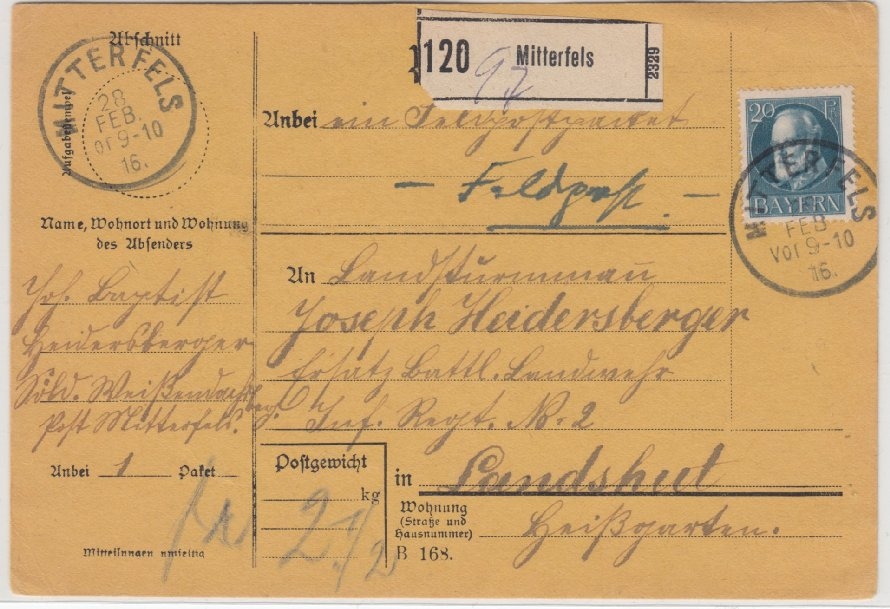 Abschnitt
MITTERFELS
28
FEB.
Vor 9-10
16.
Aufgabestempel
120 Mitterfels 2329
97
20 Pf
BAYERN
MITTERFELS
FEB
Vor 9-10
16.
Anbei ein Feldpostpacket
— Feldpost. —
Name, Wohnort und Wohnung
des Absenders
Joh. Baptist
Heidersberger
Söld. Weißen
Post Mitterfels.
Anbei 1 Paket
An Landsturmmann
Joseph Heidersberger
Ersatz Battl. Landwehr
Inf. Regt. No. 2
Postgewicht
kg
2 1/2
in Landshut
Wohnung
(Straße und
Hausnummer)
Heißgarten.
B 168.